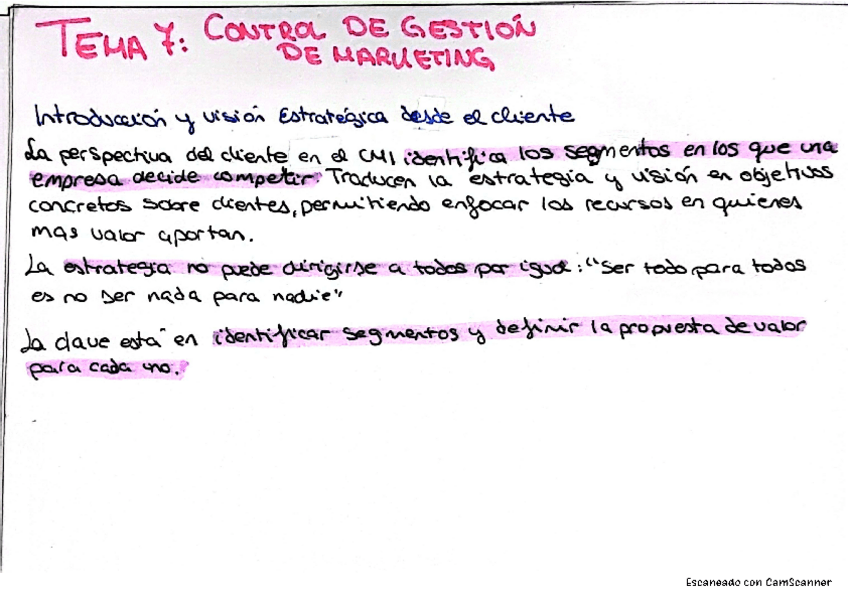 TEMA 7: CONTROL DE GESTIÓN
DE MARKETING
Introducción y visión Estratégica desde el cliente
La perspectiva del cliente en el CMI identifica los segmentos en los que una
empresa decide competir. Traducen la estrategia y visión en objetivos
concretos sobre clientes, permitiendo enfocar los recursos en quienes
más valor aportan.
La estrategia no puede dirigirse a todos por igual: "Ser todo para todos
es no ser nada para nadie"
La clave está en identificar segmentos y definir la propuesta de valor
para cada uno.
Escaneado con CamScanner